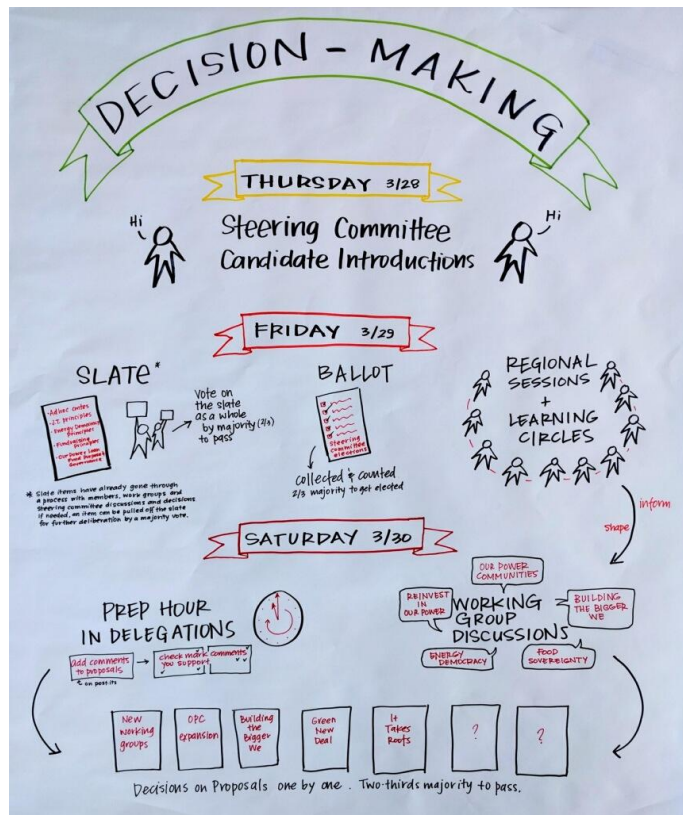 DECISION - MAKING
THURSDAY 3/28
Hi
Steering Committee
Candidate Introductions
Hi
FRIDAY 3/29
SLATE*
- Ad hoc cmtes
- J.T. principles
- Energy Democracy
Principles
- Fundraising
principles
- Our Power Loan
Fund Proposal
Governance
Vote on
the slate
as a whole
by majority (2/3)
to pass
* Slate items have already gone through
a process with members, work groups and
steering committee discussions and decisions
if needed, an item can be pulled off the slate
for further deliberation by a majority vote.
BALLOT
Steering
committee
elections
collected & counted
2/3 majority to get elected
REGIONAL
SESSIONS
+
LEARNING
CIRCLES
inform
shape
SATURDAY 3/30
PREP HOUR
IN DELEGATIONS
add comments
to proposals
* on post its
check mark comments
you support
OUR POWER
COMMUNITIES
REINVEST
IN
OUR POWER
WORKING
GROUP
DISCUSSIONS
BUILDING
THE BIGGER
WE
ENERGY
DEMOCRACY
FOOD
SOVEREIGNTY
New
working
groups
OPC
expansion
Building
the
Bigger
We
Green
New
Deal
It
Takes
Roots
?
?
Decisions on Proposals one by one. Two-thirds majority to pass.